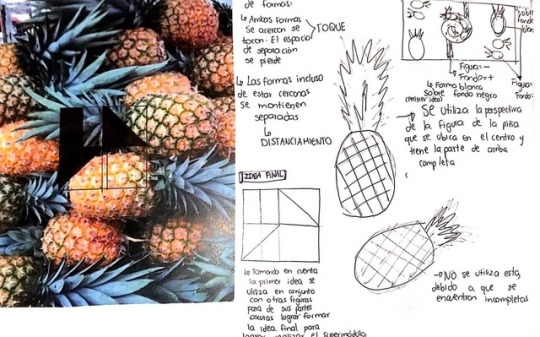 de formas:
↳ Ambas formas
se acercan se
tocan. El espacio
de separación
se pierde
TOQUE
↳ Las formas incluso
de estar cercanas
se mantienen
separadas
↳
DISTANCIAMIENTO
IDEA FINAL
↳ Tomando en cuenta
la primer idea se
utiliza en conjunto
con otras figuras
para de sus partes
oscuras lograr formar
la idea final para
realizar el Supermódulo
sobre
Figura -
Fondo +
↳ Forma blanca
sobre fondo negro
(Primer idea)
Figura
Fondo
→ Se utiliza la perspectiva
de la figura de la piña
que se ubica en el centro y
tiene la parte de arriba
completa
→ NO se utiliza esta,
debido a que se
encuentran incompletas